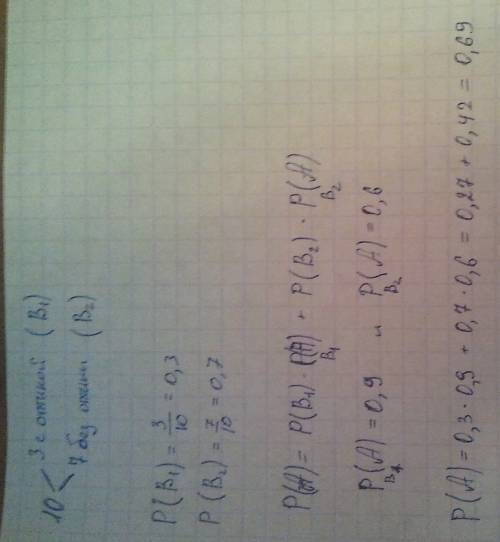 10 < 3 с оптикой (B₁)
7 без оптики (B₂)
P(B₁) = 3/10 = 0,3
P(B₂) = 7/10 = 0,7
P(A) = P(B₁) · P_B₁(A) + P(B₂) · P_B₂(A)
P_B₁(A) = 0,9 и P_B₂(A) = 0,6
P(A) = 0,3 · 0,9 + 0,7 · 0,6 = 0,27 + 0,42 = 0,69